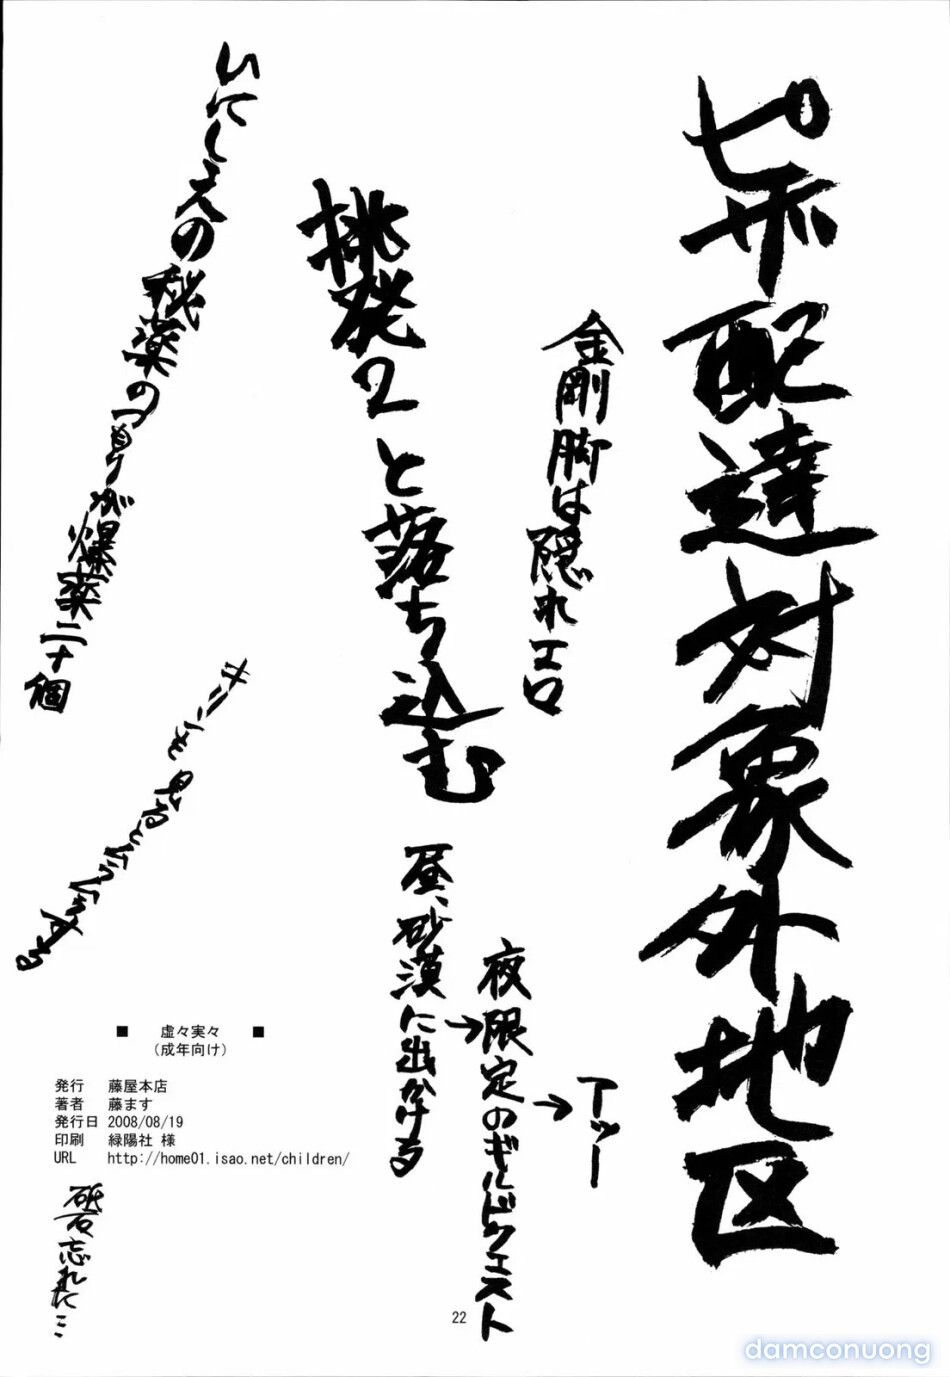 ピザ配達対象外地区
金剛脚は隠れエロ
挑発2と落ち込む
いにしえの秘薬のつもりが爆薬二十個
キリンを見るとムラムラする
昼、砂漠に出かける
→夜限定のギルドクエスト
→アッー
■ 虚々実々 ■
(成年向け)
発行 藤屋本店
著者 藤ます
発行日 2008/08/19
印刷 緑陽社 様
URL http://home01.isao.net/children/
砥石忘れた…
22
damconuong